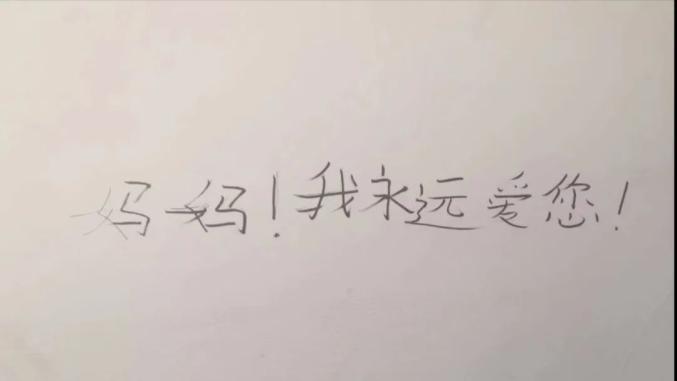 妈妈！我永远爱您！